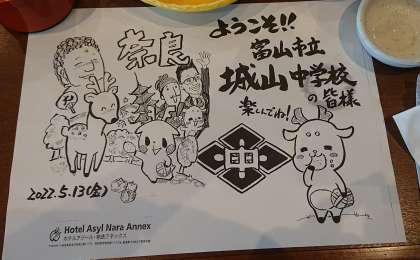 ようこそ!!
奈良
富山市立
城山中学校
の皆様
楽しんでね!
2022.5.13(金)
Hotel Asyl Nara Annex
ホテルアジール・奈良アネックス